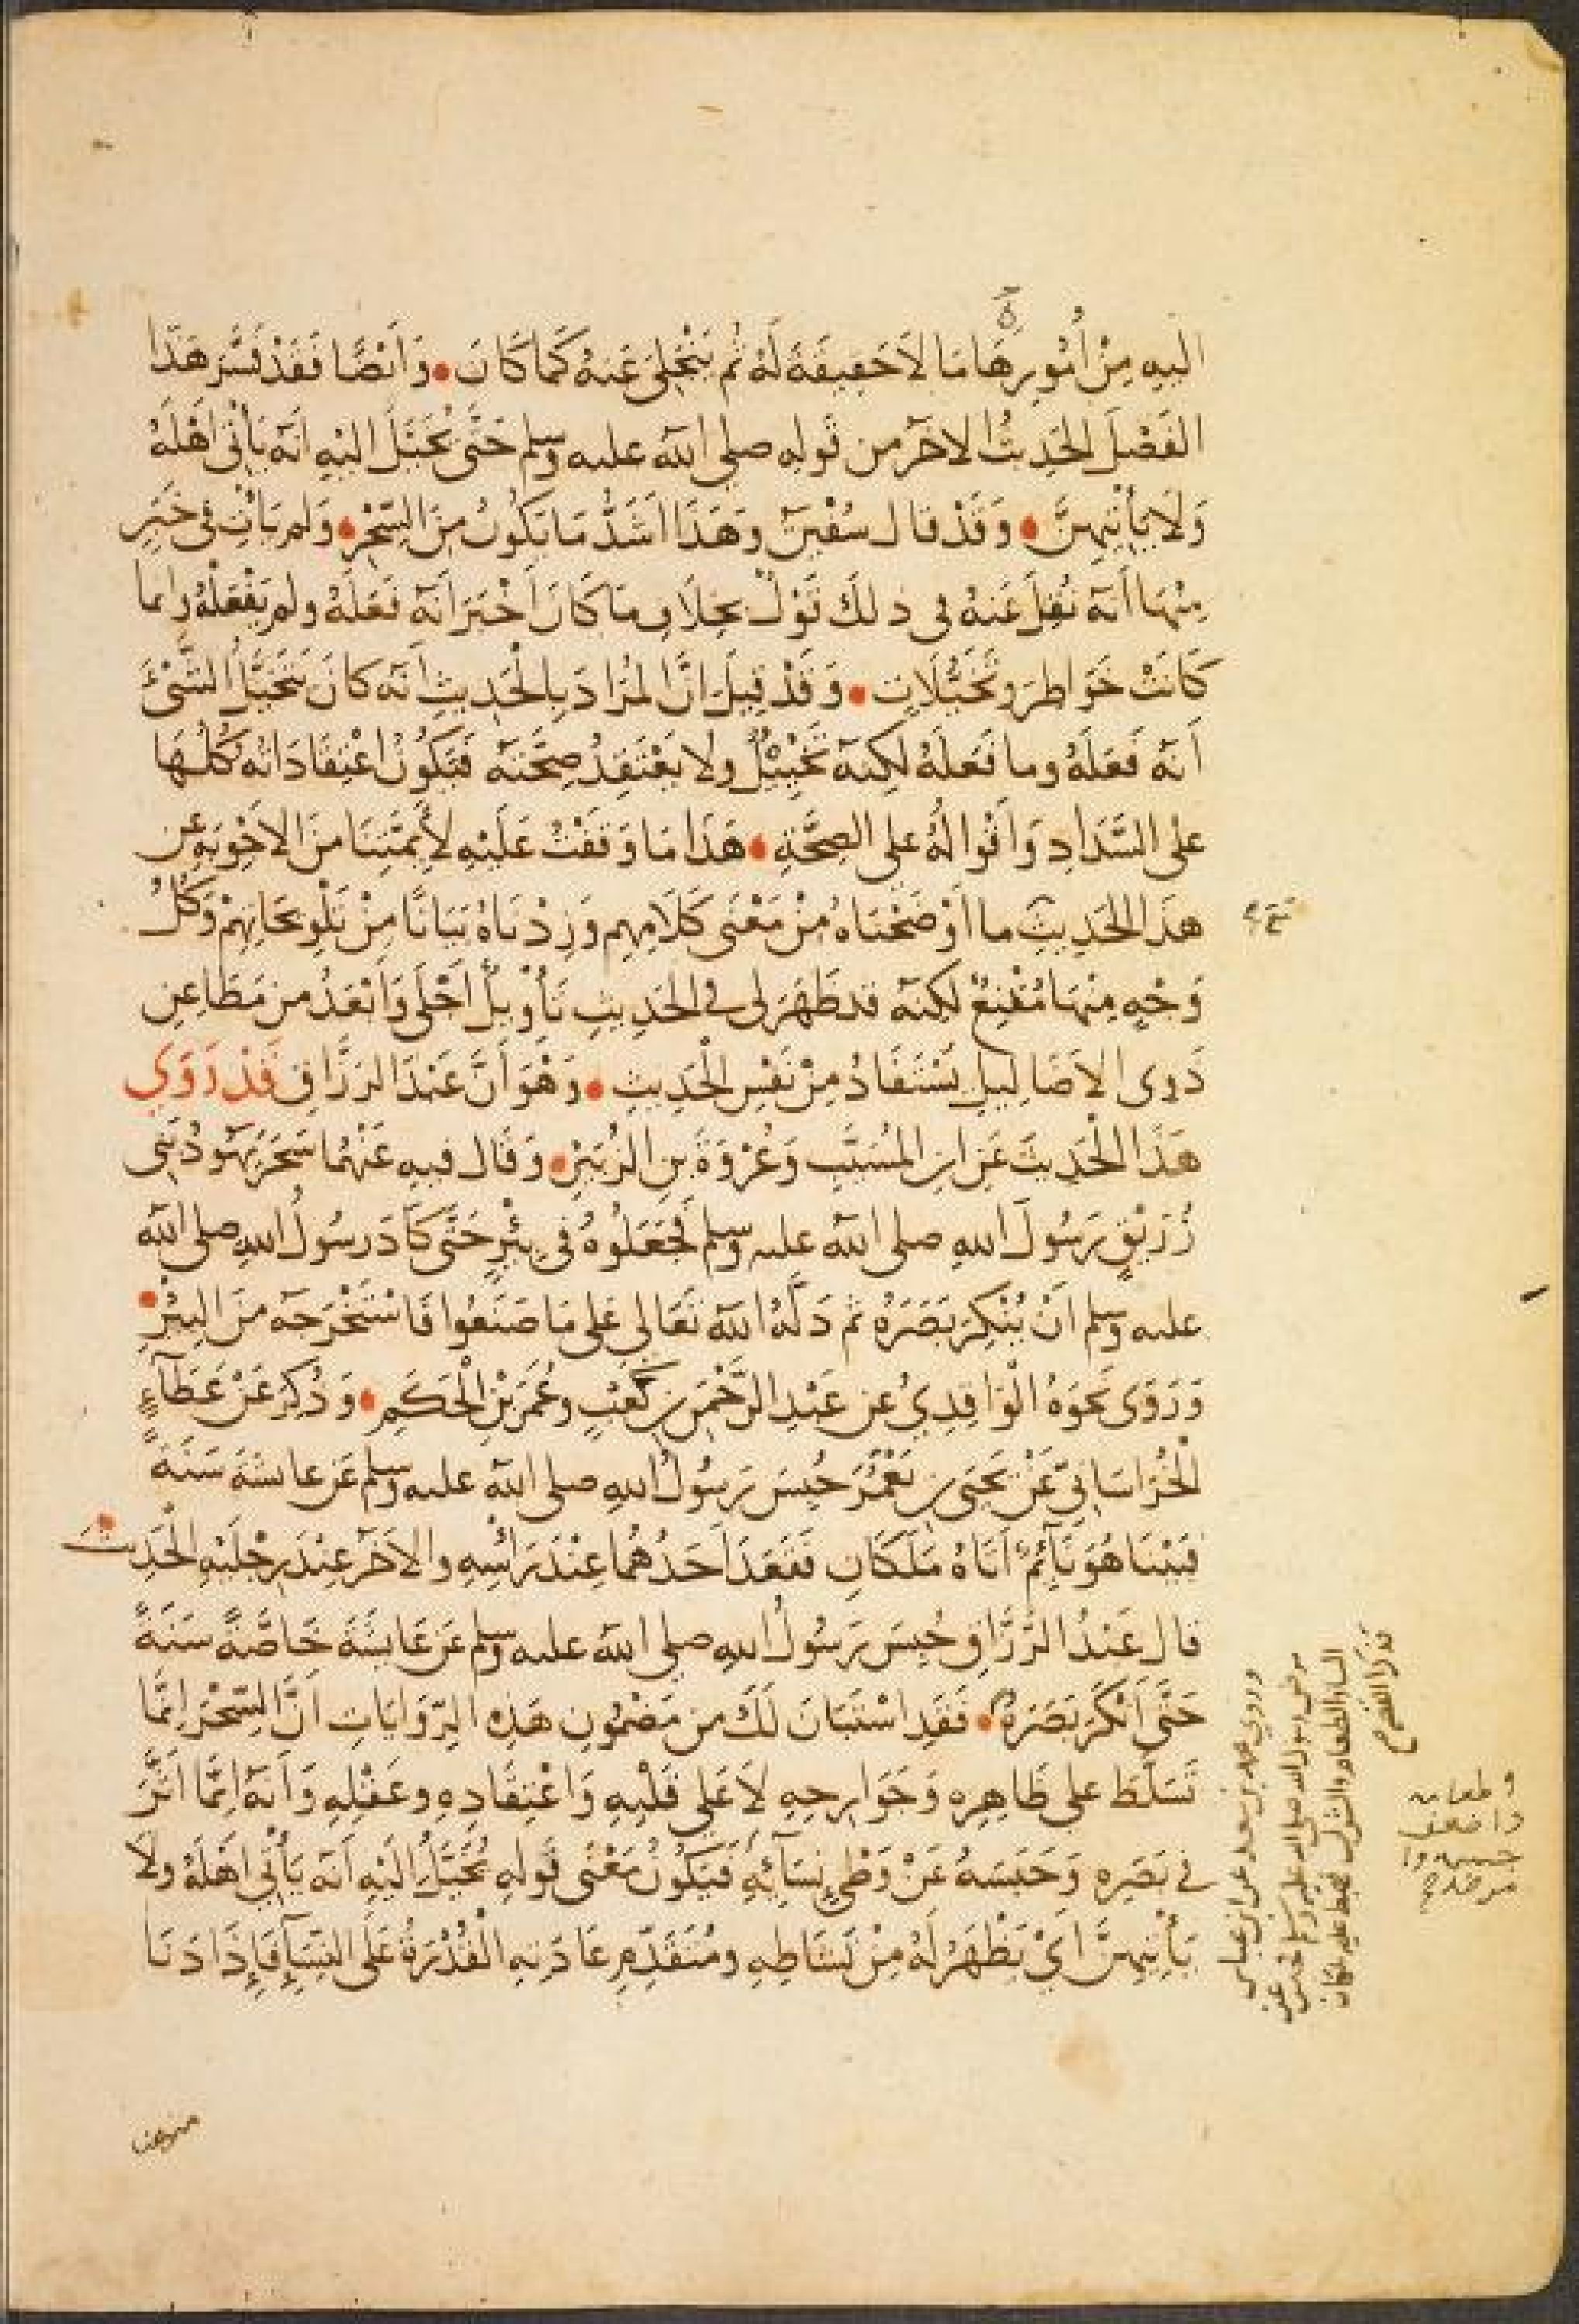 اليهِ مِنْ أُمُورِهَا مَا لَا حَقِيقَةَ لَهُ ثُم يَنْجَلِي عَنهُ كَمَا كَانَ • وَأَيْضًا فَقَدْ فَسَّرَ هَذَا
الفَصْلَ الحَدِيثُ الاخَرُ من قَولِه صلى الله عليه وسلم حَتَّى يُخَيَّلَ اليْهِ انَّهُ يَأْتِى أَهْلَهُ
وَلَا يَأْتِيهِنَّ • وَقَدْ قالَ سُفْيٰنُ وَهَذَا أَشَدُّ مَا يَكُونُ مِنَ السِّحْرِ • وَلم يَأْتِ فى خَبَرٍ
مِنْهَا أَنَّهُ نُقِلَ عَنهُ فى ذلكَ قَوْلٌ بخِلَافِ مَا كَانَ أَخْبَرَ انَّهُ فَعَلَهُ ولم يَفْعَلْهُ وانما
كَانَتْ خَوَاطِرَ وتَخَيُّلَاتٍ • وَقَدْ قِيلَ انَّ المُرَادَ بِالْحَدِيثِ أَنَّهُ كانَ يَتَخَيَّلُ الشَّىْءَ
أَنَّهُ فَعَلَهُ وما فَعَلَهُ لكِنَّهُ تَخْيِيْلٌ ولا يَعْتَقِدُ صِحَّتَهُ فَتَكُونُ اعْتِقَادَاتُهُ كُلُّهَا
على السَّدَادِ وَأَقْوالُهُ على الصِّحَّةِ • هَذَا مَا وَقَفْتُ عَلَيْهِ لِأَئِمَّتِنَا مِنَ الاجْوِبَةِ عن
هذَا الحَدِيثِ ما أَوْضَحْنَاهُ مِنْ مَعْنَى كَلَامِهِم وَزِدْنَاهُ بَيَانًا مِنْ تَلْوِيحَاتِهِمْ وَكُلُّ
وَجْهٍ مِنْهَا مُقْنِعٌ لكِنَّهُ قد ظَهَرَ لى فى الحَدِيثِ تَأْوِيلٌ أَجْلَى وَأَبْعَدُ من مَطَاعِنِ
ذَوِى الاضَالِيلِ يُسْتَفَادُ مِنْ نَفْسِ الْحَدِيثِ • وَهْوَ أَنَّ عَبْدَ الرَزَّاقِ قَدْ رَوَى
هَذَا الْحَدِيثَ عَنِ ابنِ المُسَيَّبِ وَعُرْوَةَ بنِ الزُبَيْرِ • وَقَالَ فيهِ عَنْهُمَا سَحَرَ يَهُودُ بَنِى
زُرَيْقٍ رَسُولَ اللهِ صلى الله عليه وسلم فَجَعَلُوهُ فِى بِئْرٍ حَتَّى كَادَ رسُولُ اللهِ صلى الله
عليه وسلم أَنْ يُنْكِرَ بَصَرَهُ ثم دَلَّهُ اللهُ تَعَالى عَلى مَا صَنَعُوا فَاسْتَخْرَجَهُ مِنَ البِئْرِ •
وَرَوَى نَحْوَهُ الْوَاقِدِيُّ عن عَبْدِ الرَّحْمٰنِ بن كَعْبٍ وعُمَرَ بْنِ الْحَكَمِ • وَذُكِرَ عَنْ عَطَاءٍ
الْخُرَاسَانِيِّ عَنْ يَحْيَى بن يَعْمُرَ حُبِسَ رَسُولُ اللهِ صلى الله عليه وسلم عَن عائشةَ سَنَةً
فَبَيْنَا هُوَ نَائِمٌ أَتَاهُ مَلَكَانِ فَقَعَدَ أَحَدُهُمَا عِنْدَ رَاسِهِ والاخَرُ عِنْدَ رِجْلَيْهِ الْحَدِيث •
قالَ عَبْدُ الرَّزَّاقِ حُبِسَ رَسُولُ اللهِ صلى الله عليه وسلم عَنْ عَايشَةَ خَاصَّةً سَنَةً
حَتَّى أَنْكَرَ بَصَرَهُ • فَقَدِ اسْتَبَانَ لَكَ من مَضْمُونِ هَذِهِ الرِّوَايَاتِ أَنَّ السِّحْرَ إِنَّمَا
تَسَلَّطَ على ظَاهِرِهِ وَجَوَارِحِهِ لَا عَلَى قَلْبِهِ وَاعْتِقَادِهِ وعَقْلِهِ وَأَنَّهُ إِنَّمَا أَثَّرَ
فى بَصَرِهِ وَحَبَسَهُ عَنْ وَطْىِ نِسَآئِهِ فَيَكُونُ مَعْنَى قَولِهِ يُخَيَّلُ إِلَيْهِ أَنَّهُ يَأْتِي أَهْلَهُ ولَا
يَأْتِيهِنَّ أيْ يَظْهَرُ لَهُ مِنْ نَشَاطِهِ ومُتَقَدِّمِ عَادَتِهِ الْقُدْرَةُ عَلَى النِسَآءِ فَإِذَا دَنَا
وروى محمد بن سعد عن ابن عباس
مرض رسول الله صلى الله عليه وسلم فحبس عن
النساء والطعام والشراب فهبط عليه ملكان
فذكر القصة
منهن